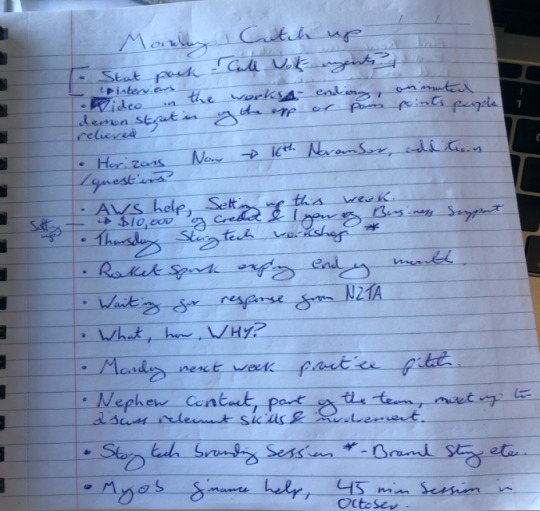 Monday Catch up
• Stat pack - "Call Volt agents?"
↳ Interviews
• Video in the works - ending, animated
demonstration of the app or pain points people
relieved
• Horizons Now → 16th November, additions
/questions?
• AWS help, Setting up this week
↳ $10,000 of credit & 1 year of Business Support
• Thursday Storytech workshop *
• Rocket Spark expiry end of month.
• Waiting for response from NZTA
• What, how, WHY?
• Monday next week practice pitch.
• Nephew Contact, part of the team, meeting to
discuss relevant skills & involvement.
• Storytech branding Session * - Brand Story etc.
• MYOB finance help, 45 min session in
October.